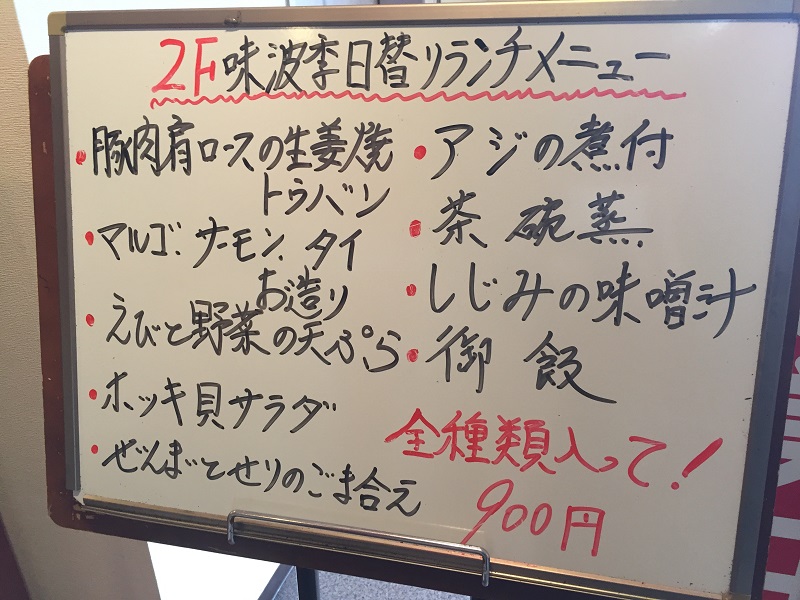 2F味波季日替りランチメニュー
・豚肉肩ロースの生姜焼
トウバン
・マルゴ.サーモン.タイ
お造り
・えびと野菜の天ぷら
・ホッキ貝サラダ
・ぜんまいとせりのごま合え
・アジの煮付
・茶碗蒸
・しじみの味噌汁
・御飯
全種類入って!
900円